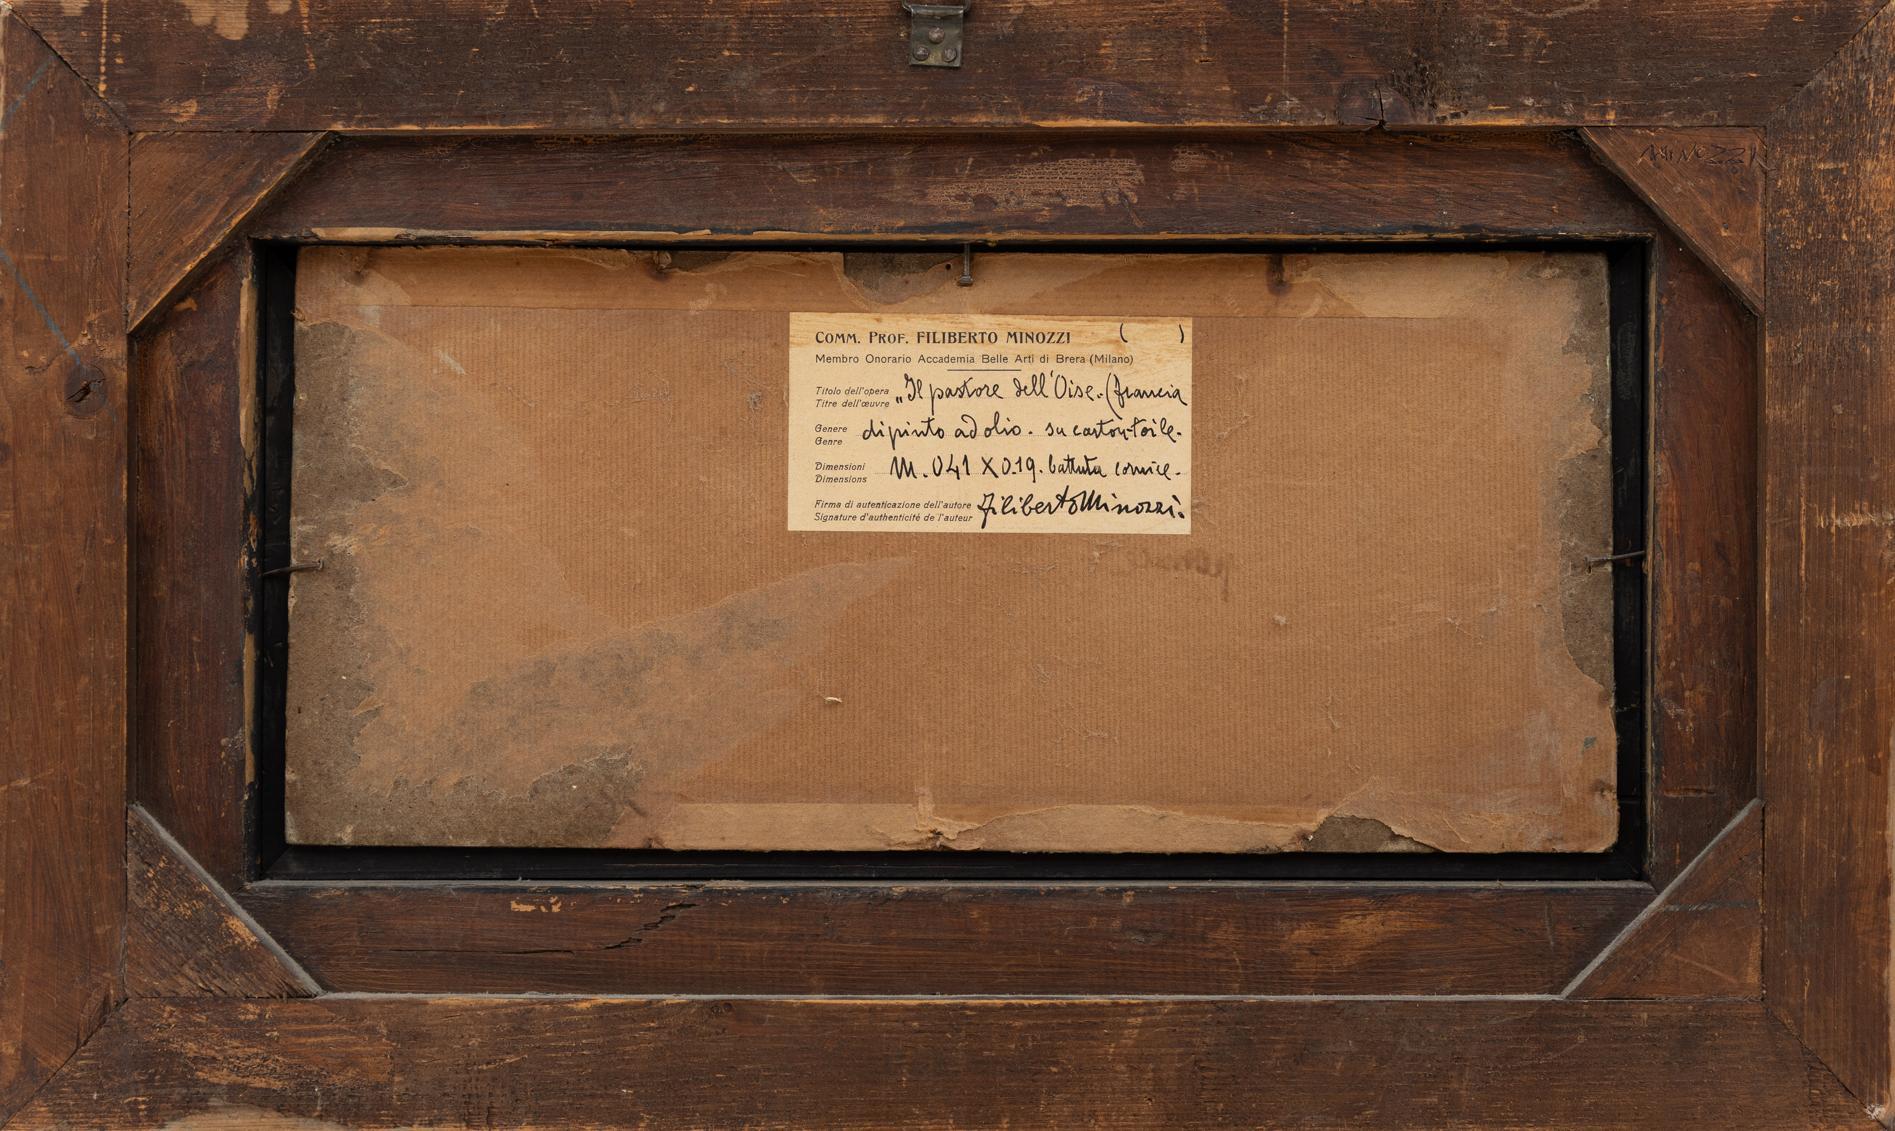 MINOZZI
COMM. PROF. FILIBERTO MINOZZI ( )
Membro Onorario Accademia Belle Arti di Brera (Milano)
Titolo dell'opera „Il pastore dell'Oise. (francia
Titre dell'œuvre
Genere dipinto ad olio. su carton-toile.
Genre
Dimensioni M. 041 X 0.19. battuta cornice.
Dimensions
Firma di autenticazione dell'autore Filiberto Minozzi.
Signature d'authenticité de l'auteur